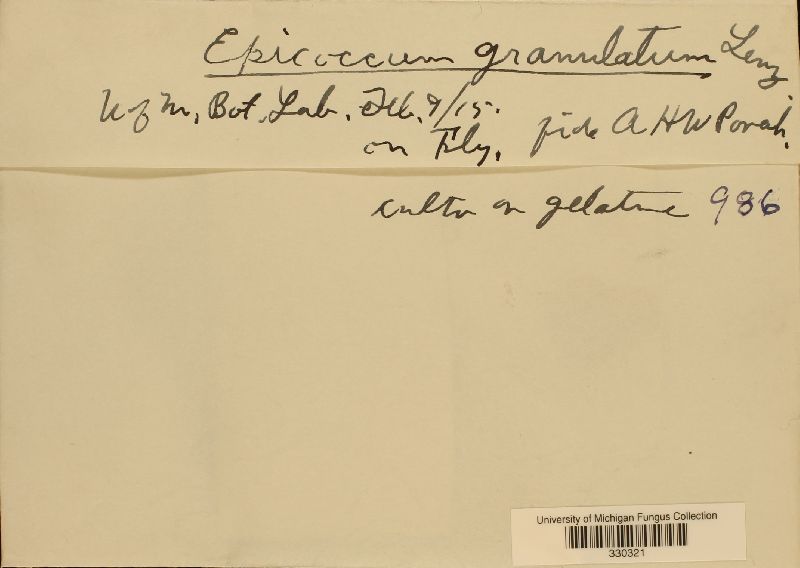 Epicoccum granulatum Penz
U of M, Bot. Lab. Feb. 9/15.
on Fly. fide A H W Povah.
cultu on gelatine 986
University of Michigan Fungus Collection
330321